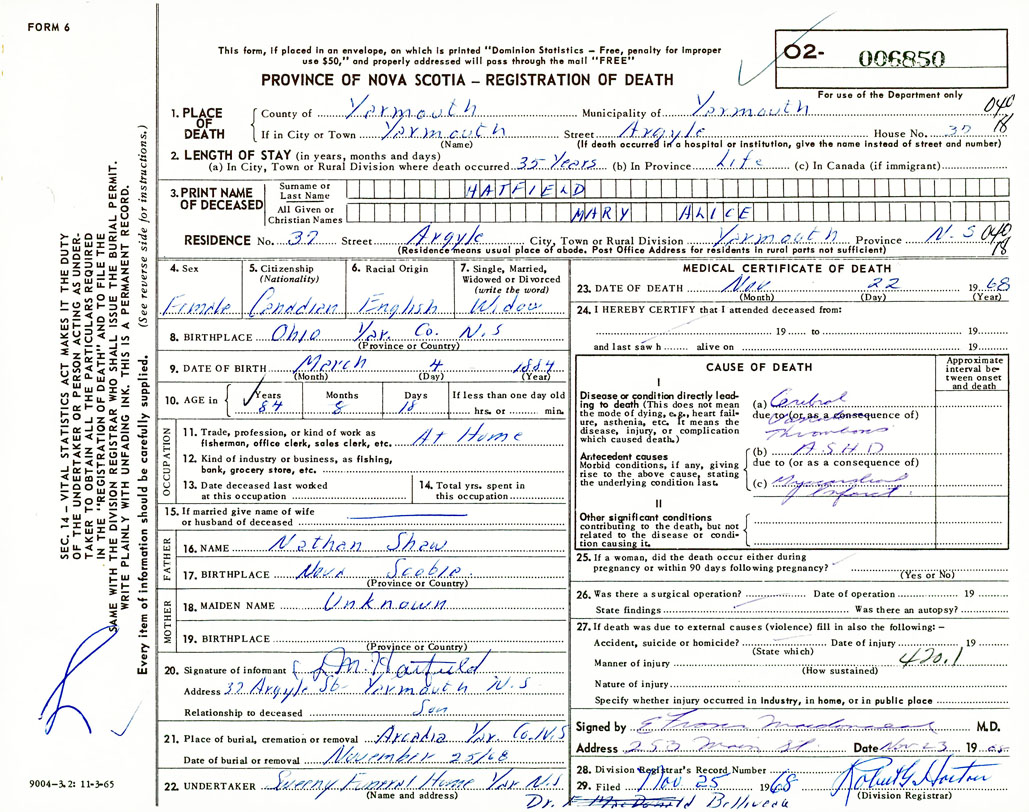 FORM 6
This form, if placed in an envelope, on which is printed "Dominion Statistics – Free, penalty for improper
use $50," and properly addressed will pass through the mail "FREE"
PROVINCE OF NOVA SCOTIA – REGISTRATION OF DEATH
02- 006850
For use of the Department only
SEC. 14 – VITAL STATISTICS ACT MAKES IT THE DUTY
OF THE UNDERTAKER OR PERSON ACTING AS UNDER-
TAKER TO OBTAIN ALL THE PARTICULARS REQUIRED
IN THE "REGISTRATION OF DEATH" AND TO FILE THE
SAME WITH THE DIVISION REGISTRAR WHO SHALL ISSUE THE BURIAL PERMIT.
WRITE PLAINLY WITH UNFADING INK. THIS IS A PERMANENT RECORD.
Every item of information should be carefully supplied. (See reverse side for instructions.)
1. PLACE OF DEATH County of Yarmouth Municipality of Yarmouth 040
If in City or Town Yarmouth Street Argyle House No. 37 18
(Name) (If death occurred in a hospital or institution, give the name instead of street and number)
2. LENGTH OF STAY (in years, months and days)
(a) In City, Town or Rural Division where death occurred 35 Years (b) In Province Life (c) In Canada (if immigrant)
3. PRINT NAME OF DECEASED Surname or Last Name HATFIELD
All Given or Christian Names MARY ALICE
RESIDENCE No. 37 Street Argyle City, Town or Rural Division Yarmouth Province N.S 040 18
(Residence means usual place of abode. Post Office Address for residents in rural parts not sufficient)
4. Sex Female
5. Citizenship (Nationality) Canadian
6. Racial Origin English
7. Single, Married, Widowed or Divorced (write the word) Widow
8. BIRTHPLACE Ohio Yar. Co. N.S
(Province or Country)
9. DATE OF BIRTH March 4 1884
(Month) (Day) (Year)
10. AGE in Years 84 Months 8 Days 18 If less than one day old hrs. or min.
OCCUPATION
11. Trade, profession, or kind of work as
fisherman, office clerk, sales clerk, etc. At Home
12. Kind of industry or business, as fishing,
bank, grocery store, etc.
13. Date deceased last worked
at this occupation
14. Total yrs. spent in
this occupation
15. If married give name of wife
or husband of deceased
FATHER
16. NAME Nathan Shaw
17. BIRTHPLACE Nova Scotia
(Province or Country)
MOTHER
18. MAIDEN NAME Unknown
19. BIRTHPLACE
(Province or Country)
20. Signature of informant Hatfield
Address 37 Argyle St Yarmouth N.S
Relationship to deceased Son
21. Place of burial, cremation or removal Arcadia Yar. Co. N.S
Date of burial or removal November 25/68
22. UNDERTAKER Sweeny Funeral Home Yar N.S
(Name and address)
9004–3.2: 11-3-65
MEDICAL CERTIFICATE OF DEATH
23. DATE OF DEATH Nov 22 1968
(Month) (Day) (Year)
24. I HEREBY CERTIFY that I attended deceased from:
19 to 19
and last saw h alive on 19
CAUSE OF DEATH
Approximate interval between onset and death
I
Disease or condition directly leading
to death (This does not mean
the mode of dying, e.g., heart failure,
asthenia, etc. It means the
disease, injury, or complication
which caused death.)
(a) Cerebral
due to (or as a consequence of)
Thrombosis
Antecedent causes
Morbid conditions, if any, giving
rise to the above cause, stating
the underlying condition last.
(b) A.S.H.D
due to (or as a consequence of)
(c) Myocardial
Infarct
II
Other significant conditions
contributing to the death, but not
related to the disease or condition
causing it.
25. If a woman, did the death occur either during
pregnancy or within 90 days following pregnancy?
(Yes or No)
26. Was there a surgical operation? Date of operation 19
State findings Was there an autopsy?
27. If death was due to external causes (violence) fill in also the following: –
Accident, suicide or homicide? Date of injury 19
(State which)
Manner of injury 420.1
(How sustained)
Nature of injury
Specify whether injury occurred in Industry, in home, or in public place
Signed by M.D.
Address 253 Main St. Date Nov 23 1968
28. Division Registrar's Record Number
29. Filed Nov 25 1968 Robert G Horton
(Division Registrar)
Dr. MacDonald Belliveau